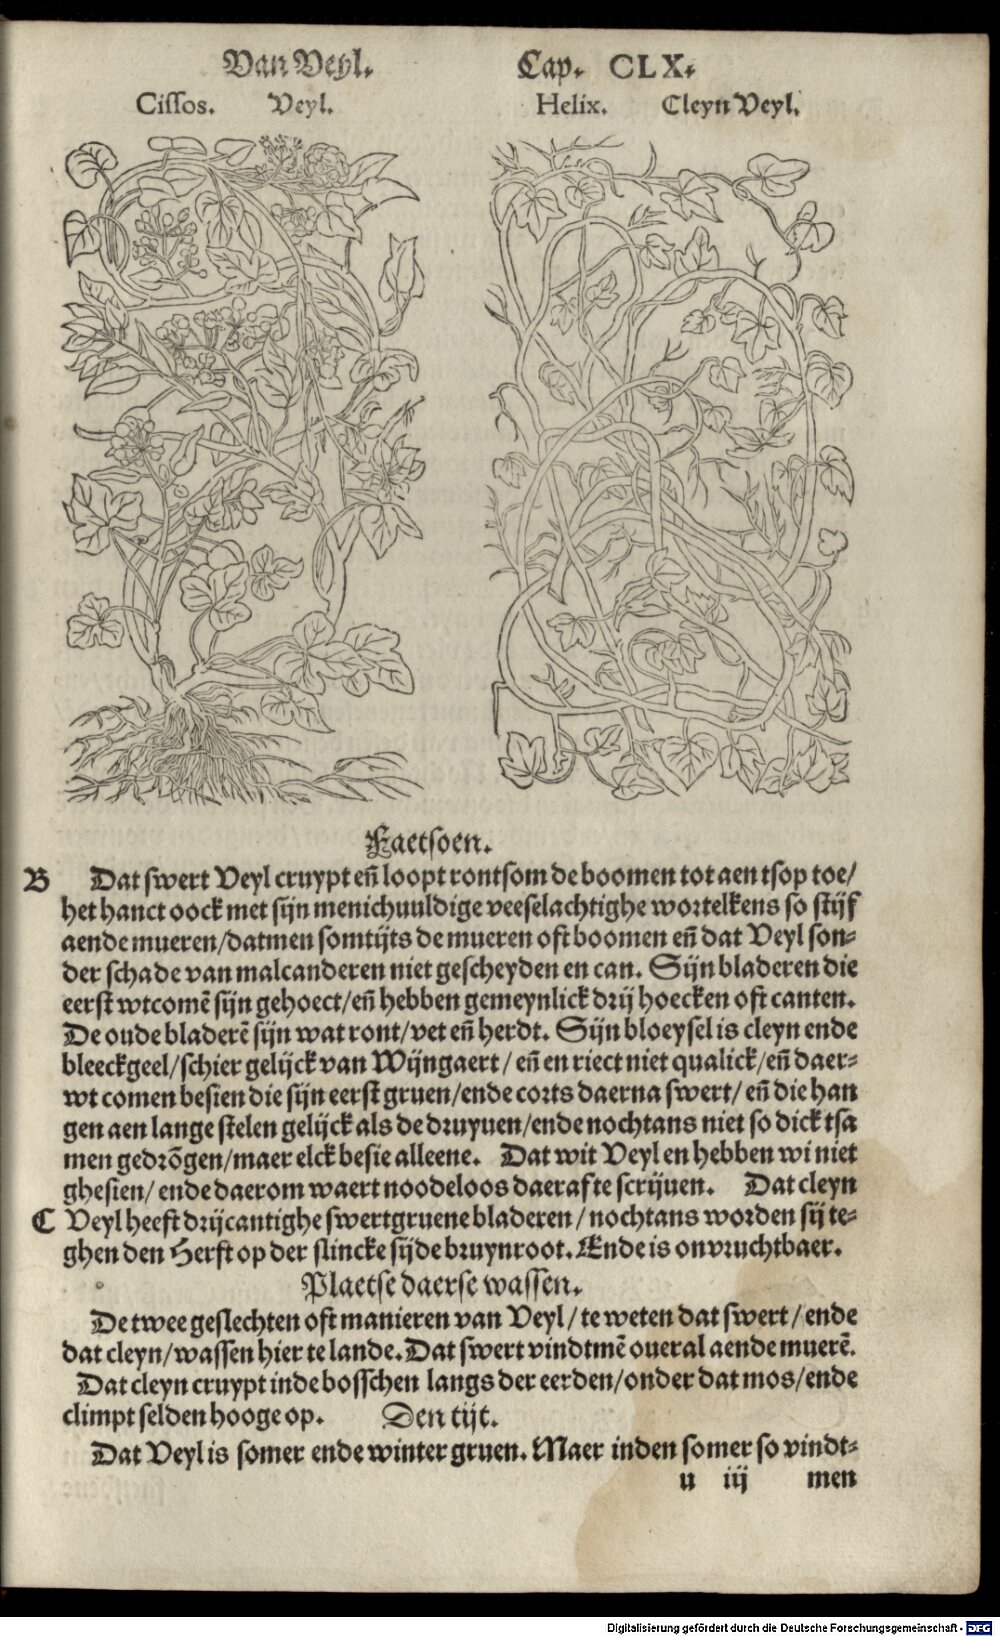 Van Veyl. Cap. CLX.
Cissos. Veyl. Helix. Cleyn Veyl.
Faetsoen.
B Dat swert Veyl cruypt eñ loopt rontsom de boomen tot aen tsop toe/
het hanct oock met sijn menichuuldige veeselachtighe wortelkens so stijf
aende mueren/datmen somtijts de mueren oft boomen eñ dat Veyl son-
der schade van malcanderen niet gescheyden en can. Sijn bladeren die
eerst wtcomẽ sijn gehoect/eñ hebben gemeynlick drij hoecken oft canten.
De oude bladerẽ sijn wat ront/vet eñ herdt. Sijn bloeysel is cleyn ende
bleeckgeel/schier gelijck van Wijngaert/ eñ en riect niet qualick/eñ daer-
wt comen besien die sijn eerst gruen/ende corts daerna swert/ eñ die han
gen aen lange stelen gelijck als de druyuen/ende nochtans niet so dick tsa
men gedrõgen/maer elck besie alleene. Dat wit Veyl en hebben wi niet
ghesien/ ende daerom waert noodeloos daeraf te scrijuen. Dat cleyn
C Veyl heeft drijcantighe swertgruene bladeren/nochtans worden sij te-
ghen den Herfst op der slincke sijde bruynroot. Ende is onvruchtbaer.
Plaetse daerse wassen.
De twee geslechten oft manieren van Veyl/te weten dat swert/ende
dat cleyn/wassen hier te lande. Dat swert vindtmẽ oueral aende muerẽ.
Dat cleyn cruypt inde bosschen langs der eerden/onder dat mos/ende
climpt selden hooge op. Den tijt.
Dat Veyl is somer ende winter gruen. Maer inden somer so vindt-
u iij men
Digitalisierung gefördert durch die Deutsche Forschungsgemeinschaft - DFG